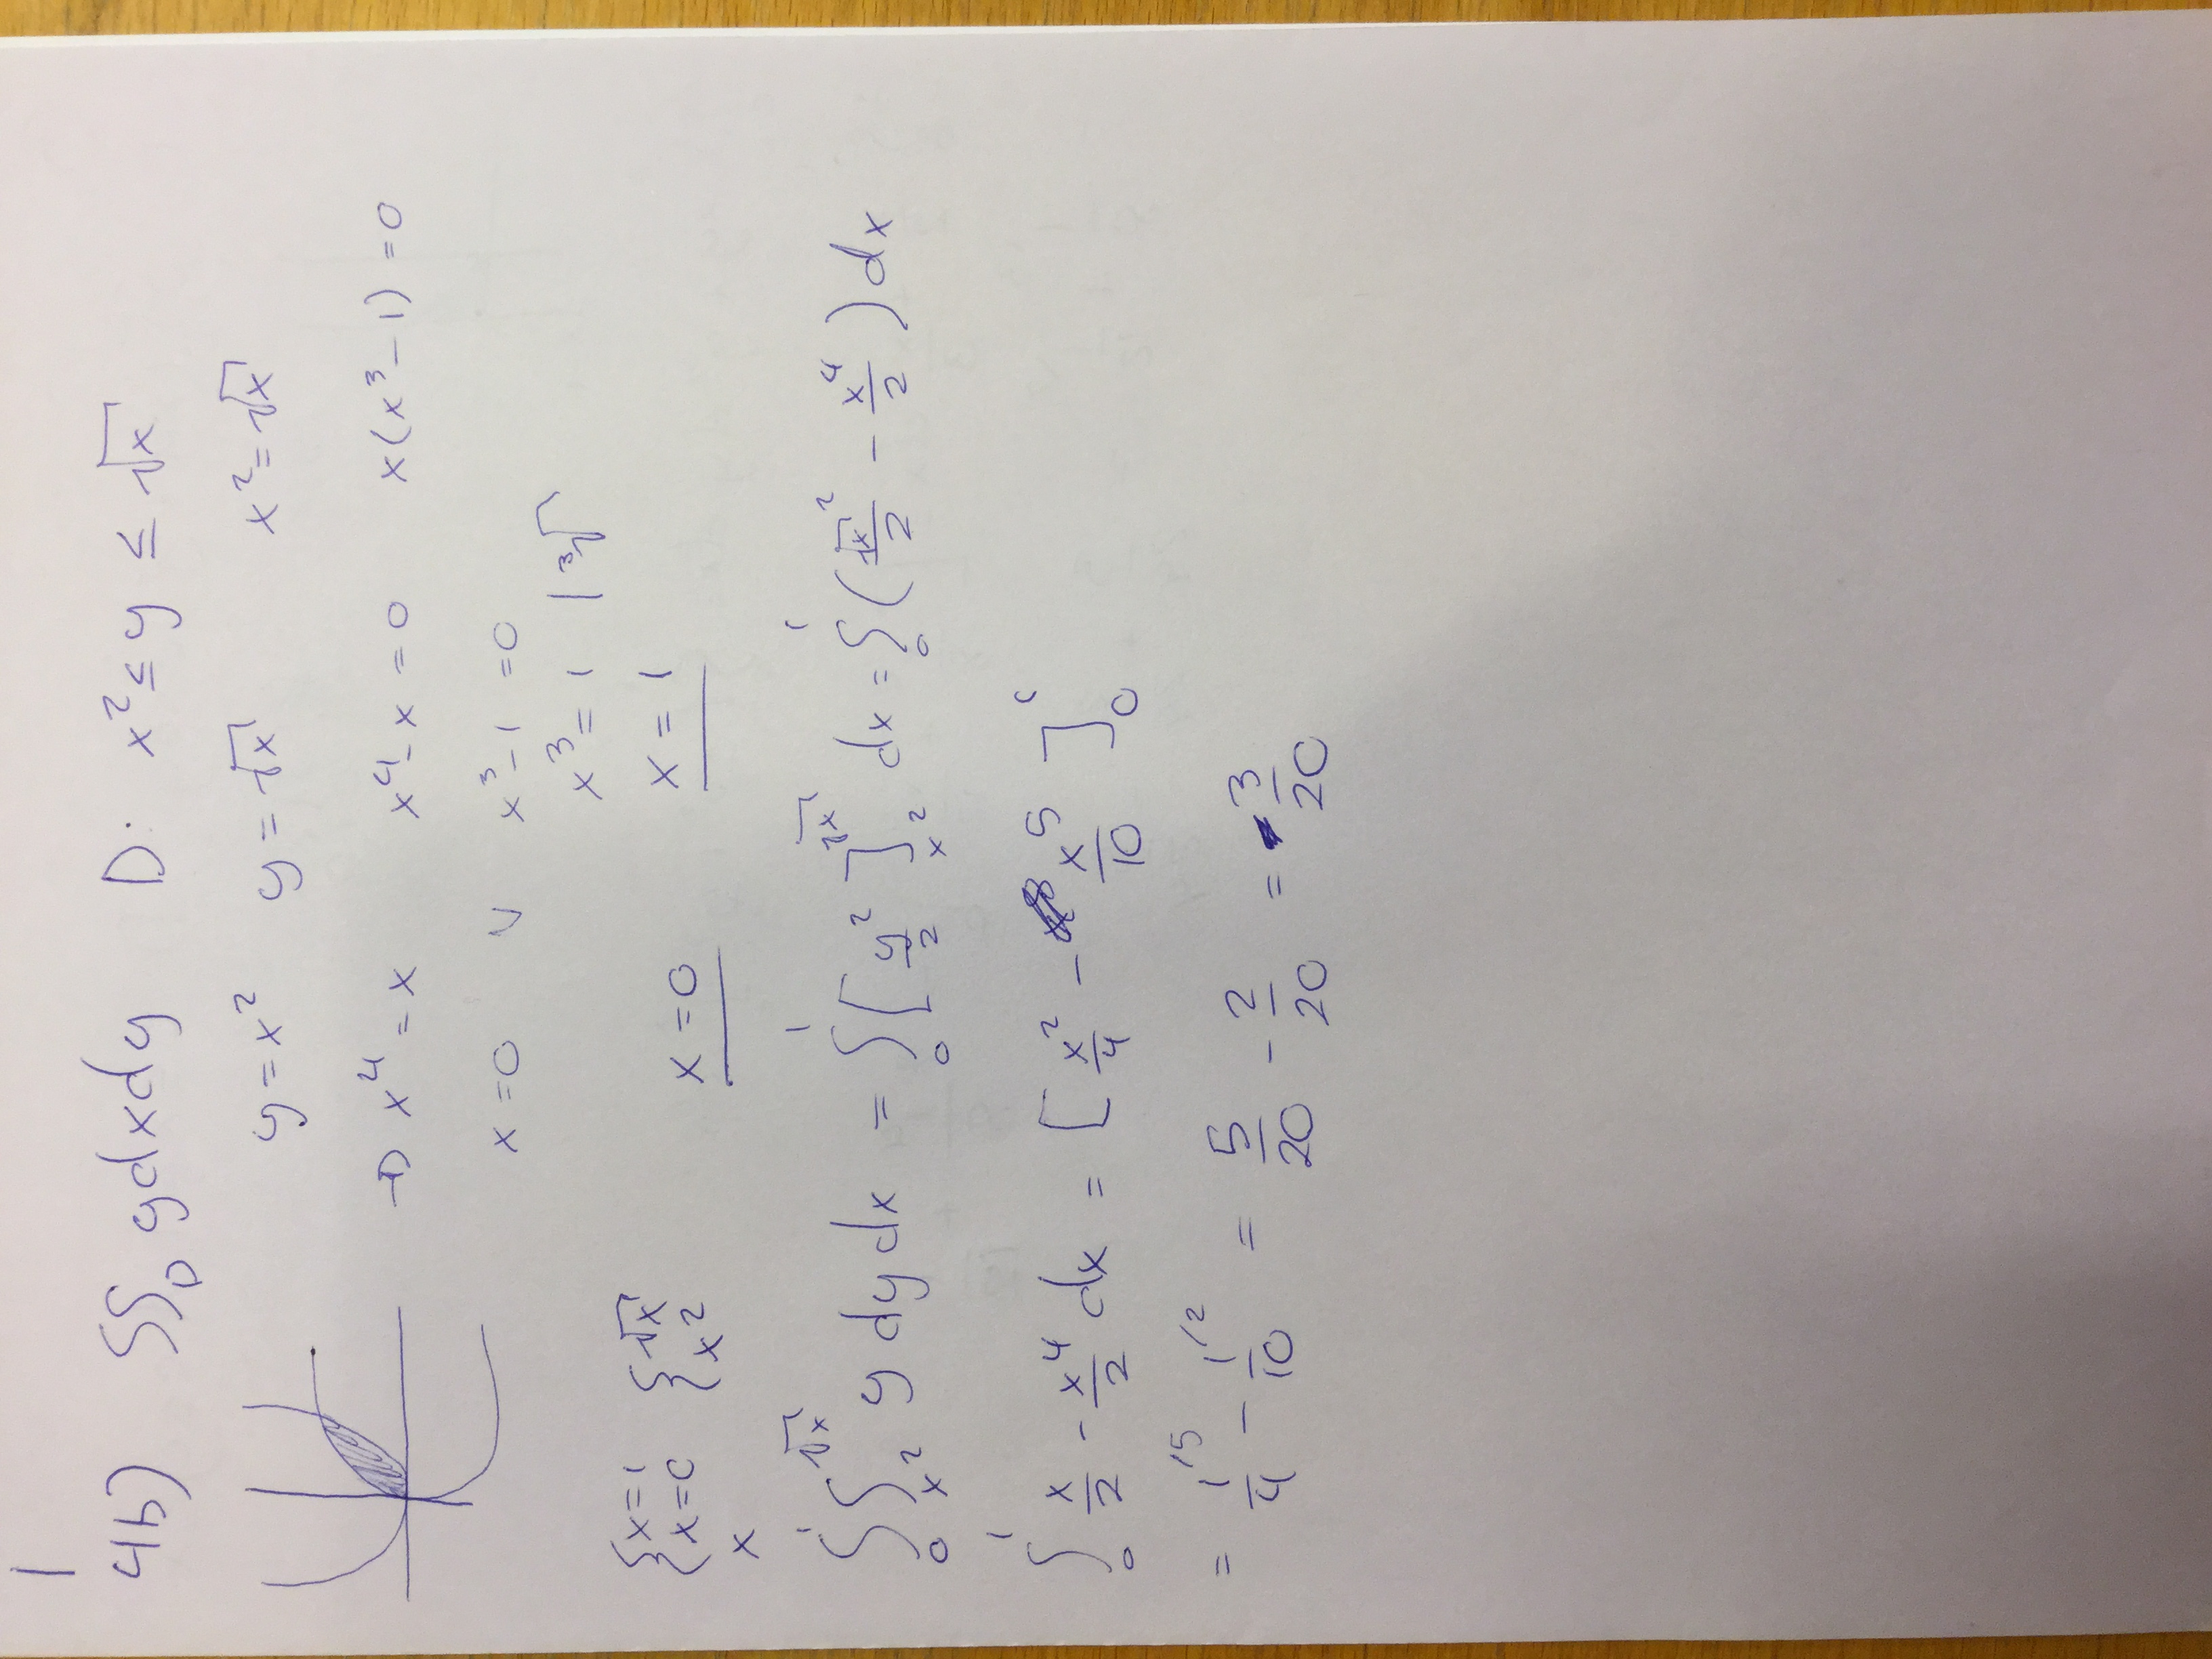 1
4b) ∬_D y dx dy D: x² ≤ y ≤ √x
y = x² y = √x x² = √x
→ x⁴ = x x⁴ - x = 0 x(x³ - 1) = 0
x = 0 ∨ x³ - 1 = 0
x³ = 1 | ³√
{x = 1 {√x
{x = 0 {x² x = 0 x = 1
x
∫₀¹ ∫_{x²}^{√x} y dy dx = ∫₀¹ [y²/2]_{x²}^{√x} dx = ∫₀¹ (√x²/2 - x⁴/2) dx
∫₀¹ x/2 - x⁴/2 dx = [x²/4 - x⁵/10]₀¹
= 1/4 ^{/5} - 1/10 ^{/2} = 5/20 - 2/20 = 3/20